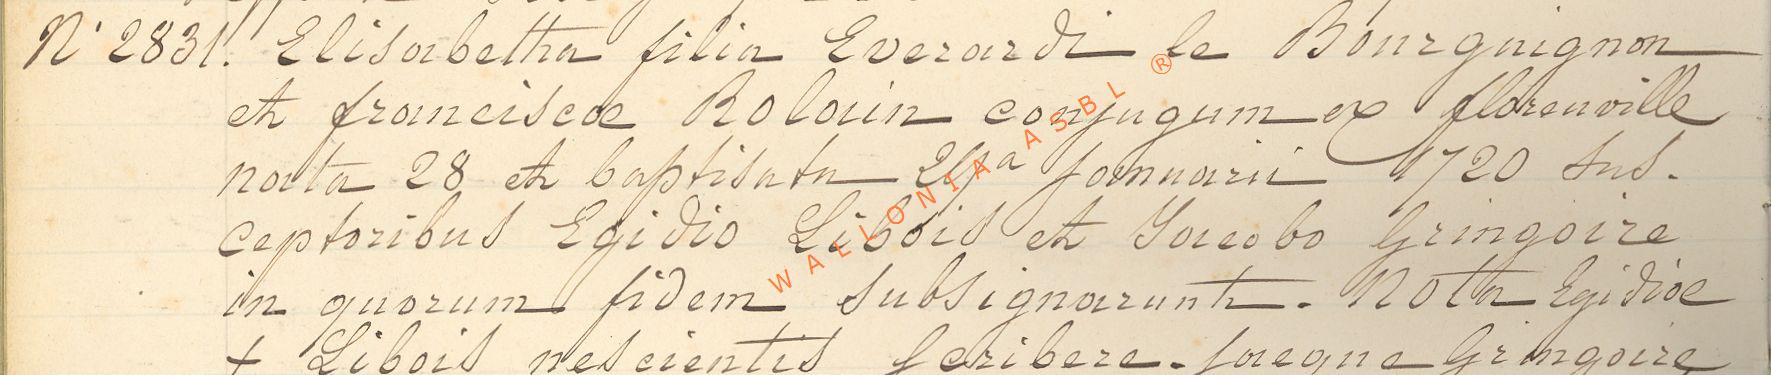 N° 2831. Elisabetha filia Everardi le Bourguignon
et franciscae Rolain conjugum ex florenville
nata 28 et baptisata 29a Januarii 1720 sus-
ceptoribus Egidio Libois et Jacobo Gringoire
in quorum fidem subsignarunt. Nota Egidio
+ Libois nescientis scribere. Jacque Gringoire
WALLONIA ASBL ®